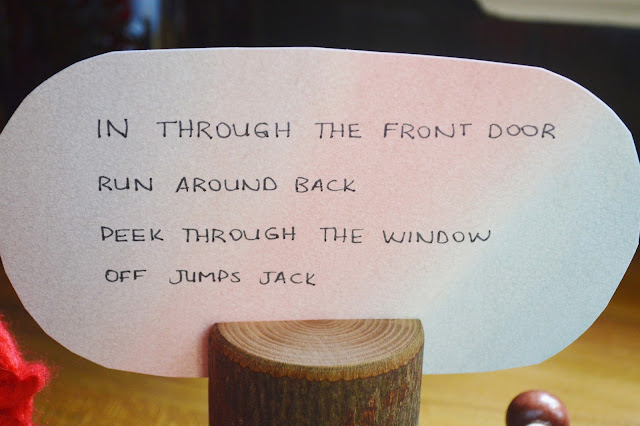 IN THROUGH THE FRONT DOOR
RUN AROUND BACK
PEEK THROUGH THE WINDOW
OFF JUMPS JACK